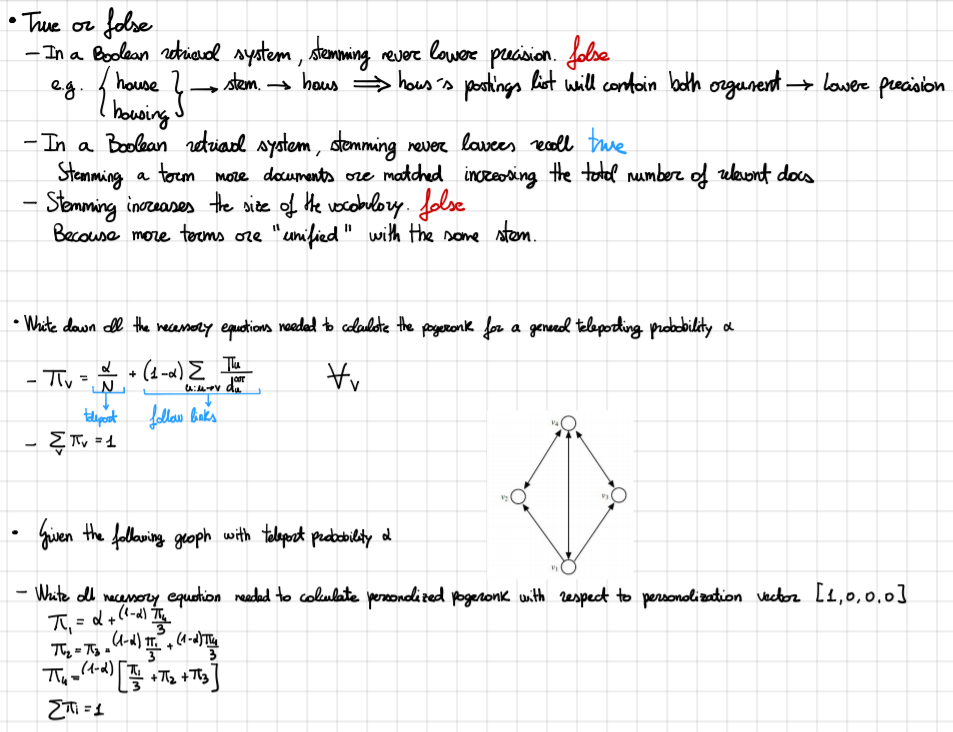 • True or false
– In a Boolean retrieval system, stemming never lower precision. false
e.g. { house housing } → stem. → hous ⟹ hous's postings list will contain both argument → Lower precision
– In a Boolean retrieval system, stemming never lowers recall true
Stemming a term more documents are matched increasing the total number of relevant docs
– Stemming increases the size of the vocabulary. false
Because more terms are "unified" with the same stem.
• Write down all the necessary equations needed to calculate the pagerank for a general teleporting probability α
– π_v = α/N + (1-α) Σ_{u:u→v} π_u/d_u^{out} ∀_v
teleport follow links
– Σ_v π_v = 1
v₄
v₂ v₃
v₁
• Given the following graph with teleport probability α
– Write all necessary equation needed to calculate personalized pagerank with respect to personalization vector [1,0,0,0]
π₁ = α + (1-α) π₄/3
π₂ = π₃ = (1-α) π₁/3 + (1-α) π₄/3
π₄ = (1-α) [π₁/3 + π₂ + π₃]
Σπi = 1